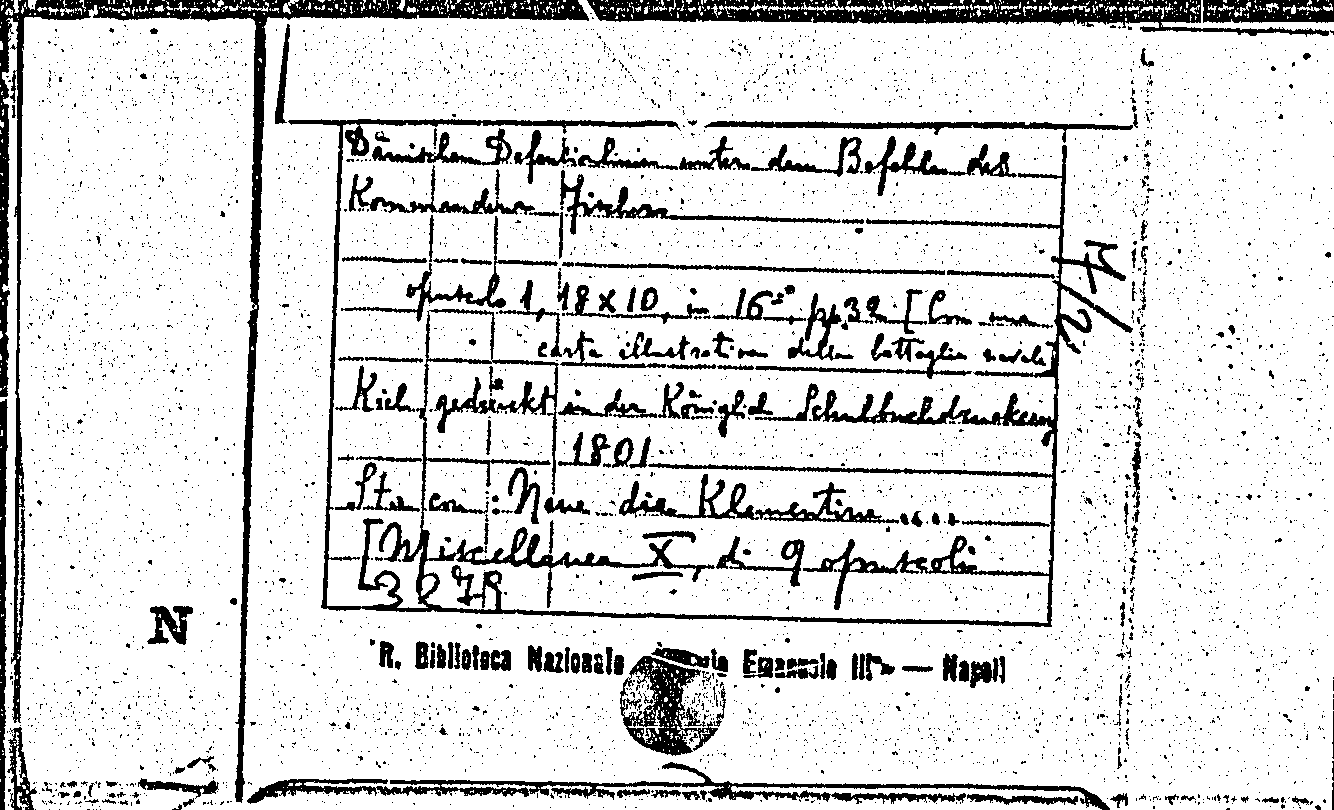 Dänischen Defentionlinien unter dem Befehlen des
Kommandeur Fischers
opuscolo 1, 18 x 10, in 16°, pp. 32 [Con una
carta illustrativa della battaglia navale]
Kiel, gedrückt in der Königlich Schulbuchdruckerey
1801
Sta con: Neue die Klementine....
[Miscellanea X, di 9 opuscoli
N
R. Biblioteca Nazionale Emanuele III" — Napoli